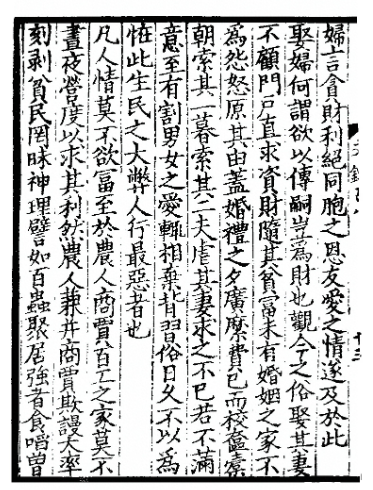 婦言貪財利絕同胞之恩友愛之情遂及於此
娶婦何謂欲以傳嗣豈為財也觀今之俗娶其妻
不顧門戶直求資財隨其貧富未有婚姻之家不
為怨怒原其由蓋婚禮之夕廣糜費已而校奩橐
朝索其一暮索其二夫虐其妻求之不已若不滿
意至有割男女之愛輒相棄背習俗日久不以為
怪此生民之大弊人行最惡者也
凡人情莫不欲富至於農人商賈百工之家莫不
晝夜營度以求其利然農人兼并商賈欺謾大率
刻剥貧民罔昧神理譬如百蟲聚居強者食嚼曾